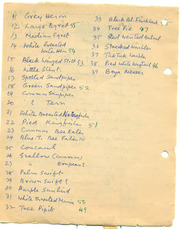 11 Grey Heron
12 Large Egret 55
13 Medium Egret
14 White breasted
Water Hen 54
15 Black Winged Stilt 53
16 Little Stint
17 Spotted Sandpiper
18 Green Sandpiper 52
19 Common Sandpiper
20 " Tern
21 White breasted
22 Pied Kingfisher 51
23 Common Bee Eater
24 Blue T. Bee Eater
25 Coucal
26 Swallow (Common)
27 " (
28 Palm Swift
29 Brown Swift?
30 Purple Sunbird
31 White breasted 55
32 Tree Pipit 49
33 Black
34 Tree Pie 47
35 Red vented Bulbul
36 Streaked
37
38 Pied 46
39 Baya Weaver